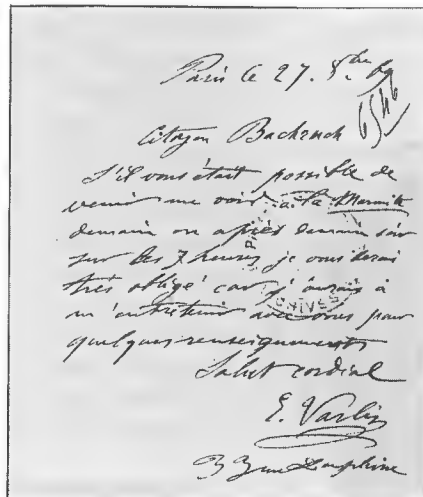 Paris le 27. 8bre 69
6546
Citoyen Bachruch
S'il vous était possible de
venir me voir à la Marmite
demain ou après demain soir
sur les 7 heures je vous serai
très obligé car j'aurais à
m'entretenir avec vous pour
quelques renseignements
Salut cordial
E. Varlin
33 rue Dauphine